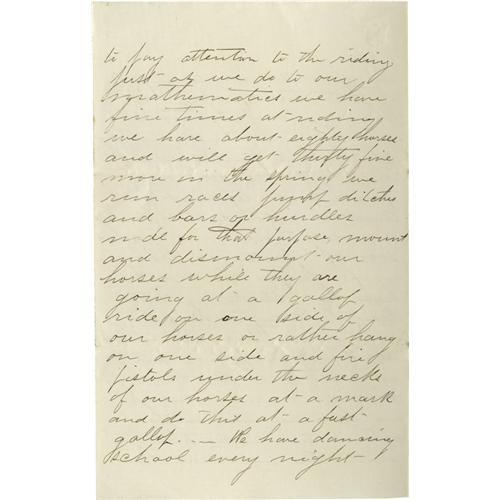 to pay attention to the riding
just as we do to our
mathematics we have
fine times at riding
we have about eighty horses
and will get thirty five
more in the spring we
run races jump ditches
and bars or hurdles
made for that purpose, mount
and dismount our
horses while they are
going at a gallop
ride on one side of
our horses or rather hang
on one side and fire
pistols under the necks
of our horses at a mark
and do this at a fast
gallop. — We have dancing
school every night